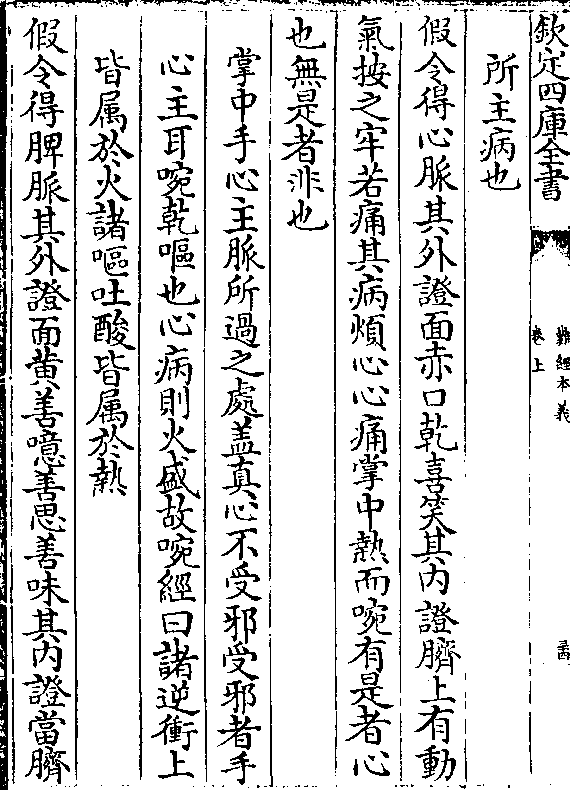 欽定四庫全書
難經本義
卷上
所主病也
假令得心脈其外證面赤口乾喜笑其内證臍上有動
氣按之牢若痛其病煩心心痛掌中熱而啘有是者心
也無是者非也
掌中手心主脈所過之處盖真心不受邪受邪者手
心主耳啘乾嘔也心病則火盛故啘經曰諸逆衝上
皆属於火諸嘔吐酸皆属於熱
假令得脾脈其外證面黄善噫善思善味其内證當臍